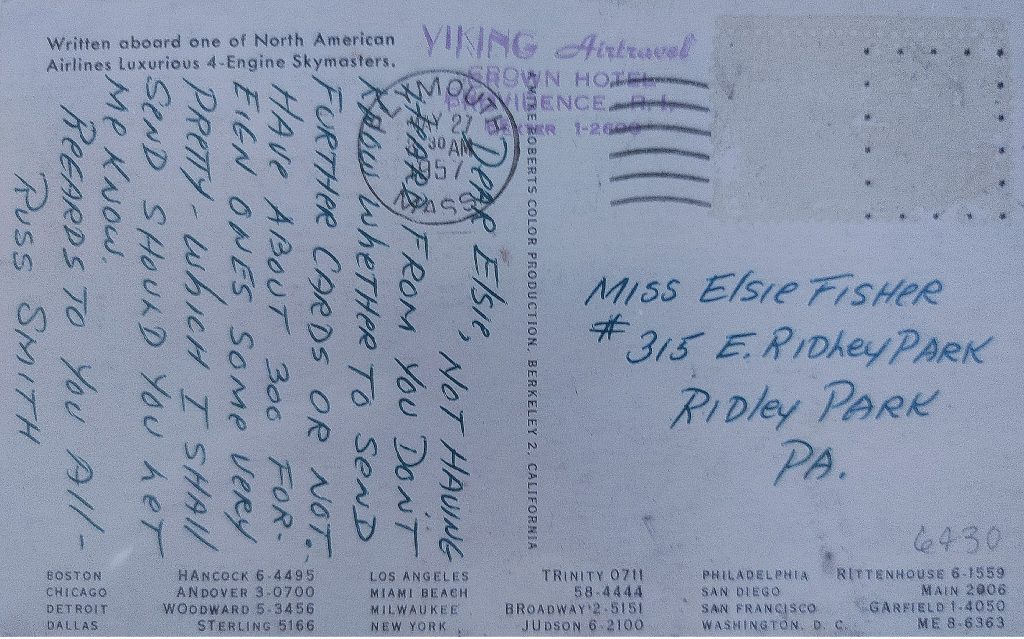 Written aboard one of North American
Airlines Luxurious 4-Engine Skymasters.
VIKING Airtravel
CROWN HOTEL
PROVIDENCE, R.I.
DEXTER 1-2600
30 AM
1957
MASS
DEAR ElsIE, NOT HAVING
HEARD FROM YOU DON'T
KNOW WHETHER TO SEND
FURTHER CARDS OR NOT.-
HAVE ABOUT 300 FOR-
EIGN ONES SOME VERY
PRETTY - WHICH I SHAll
SEND SHOULD YOU LET
ME KNOW.
REGARDS TO YOU All -
RUSS SMITH
MIKE ROBERTS COLOR PRODUCTION, BERKELEY 2, CALIFORNIA
MISS ElsIE FISHER
# 315 E. RIDLEY PARK
RIDLEY PARK
PA.
6430
BOSTON HANCOCK 6-4495
CHICAGO ANDOVER 3-0700
DETROIT WOODWARD 5-3456
DALLAS STERLING 5166
LOS ANGELES TRINITY 0711
MIAMI BEACH 58-4444
MILWAUKEE BROADWAY 2-5151
NEW YORK JUDSON 6-2100
PHILADELPHIA RITTENHOUSE 6-1559
SAN DIEGO MAIN 2006
SAN FRANCISCO GARFIELD 1-4050
WASHINGTON, D. C. ME 8-6363